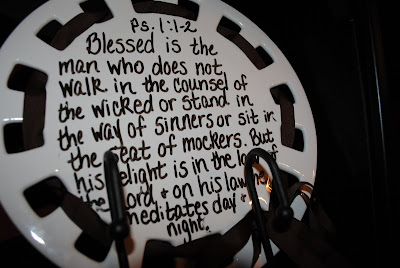 Ps. 1:1-2
Blessed is the
man who does not
walk in the counsel of
the wicked or stand in
the way of sinners or sit in
the seat of mockers. But
his delight is in the law of
the Lord + on his law he
meditates day +
night.